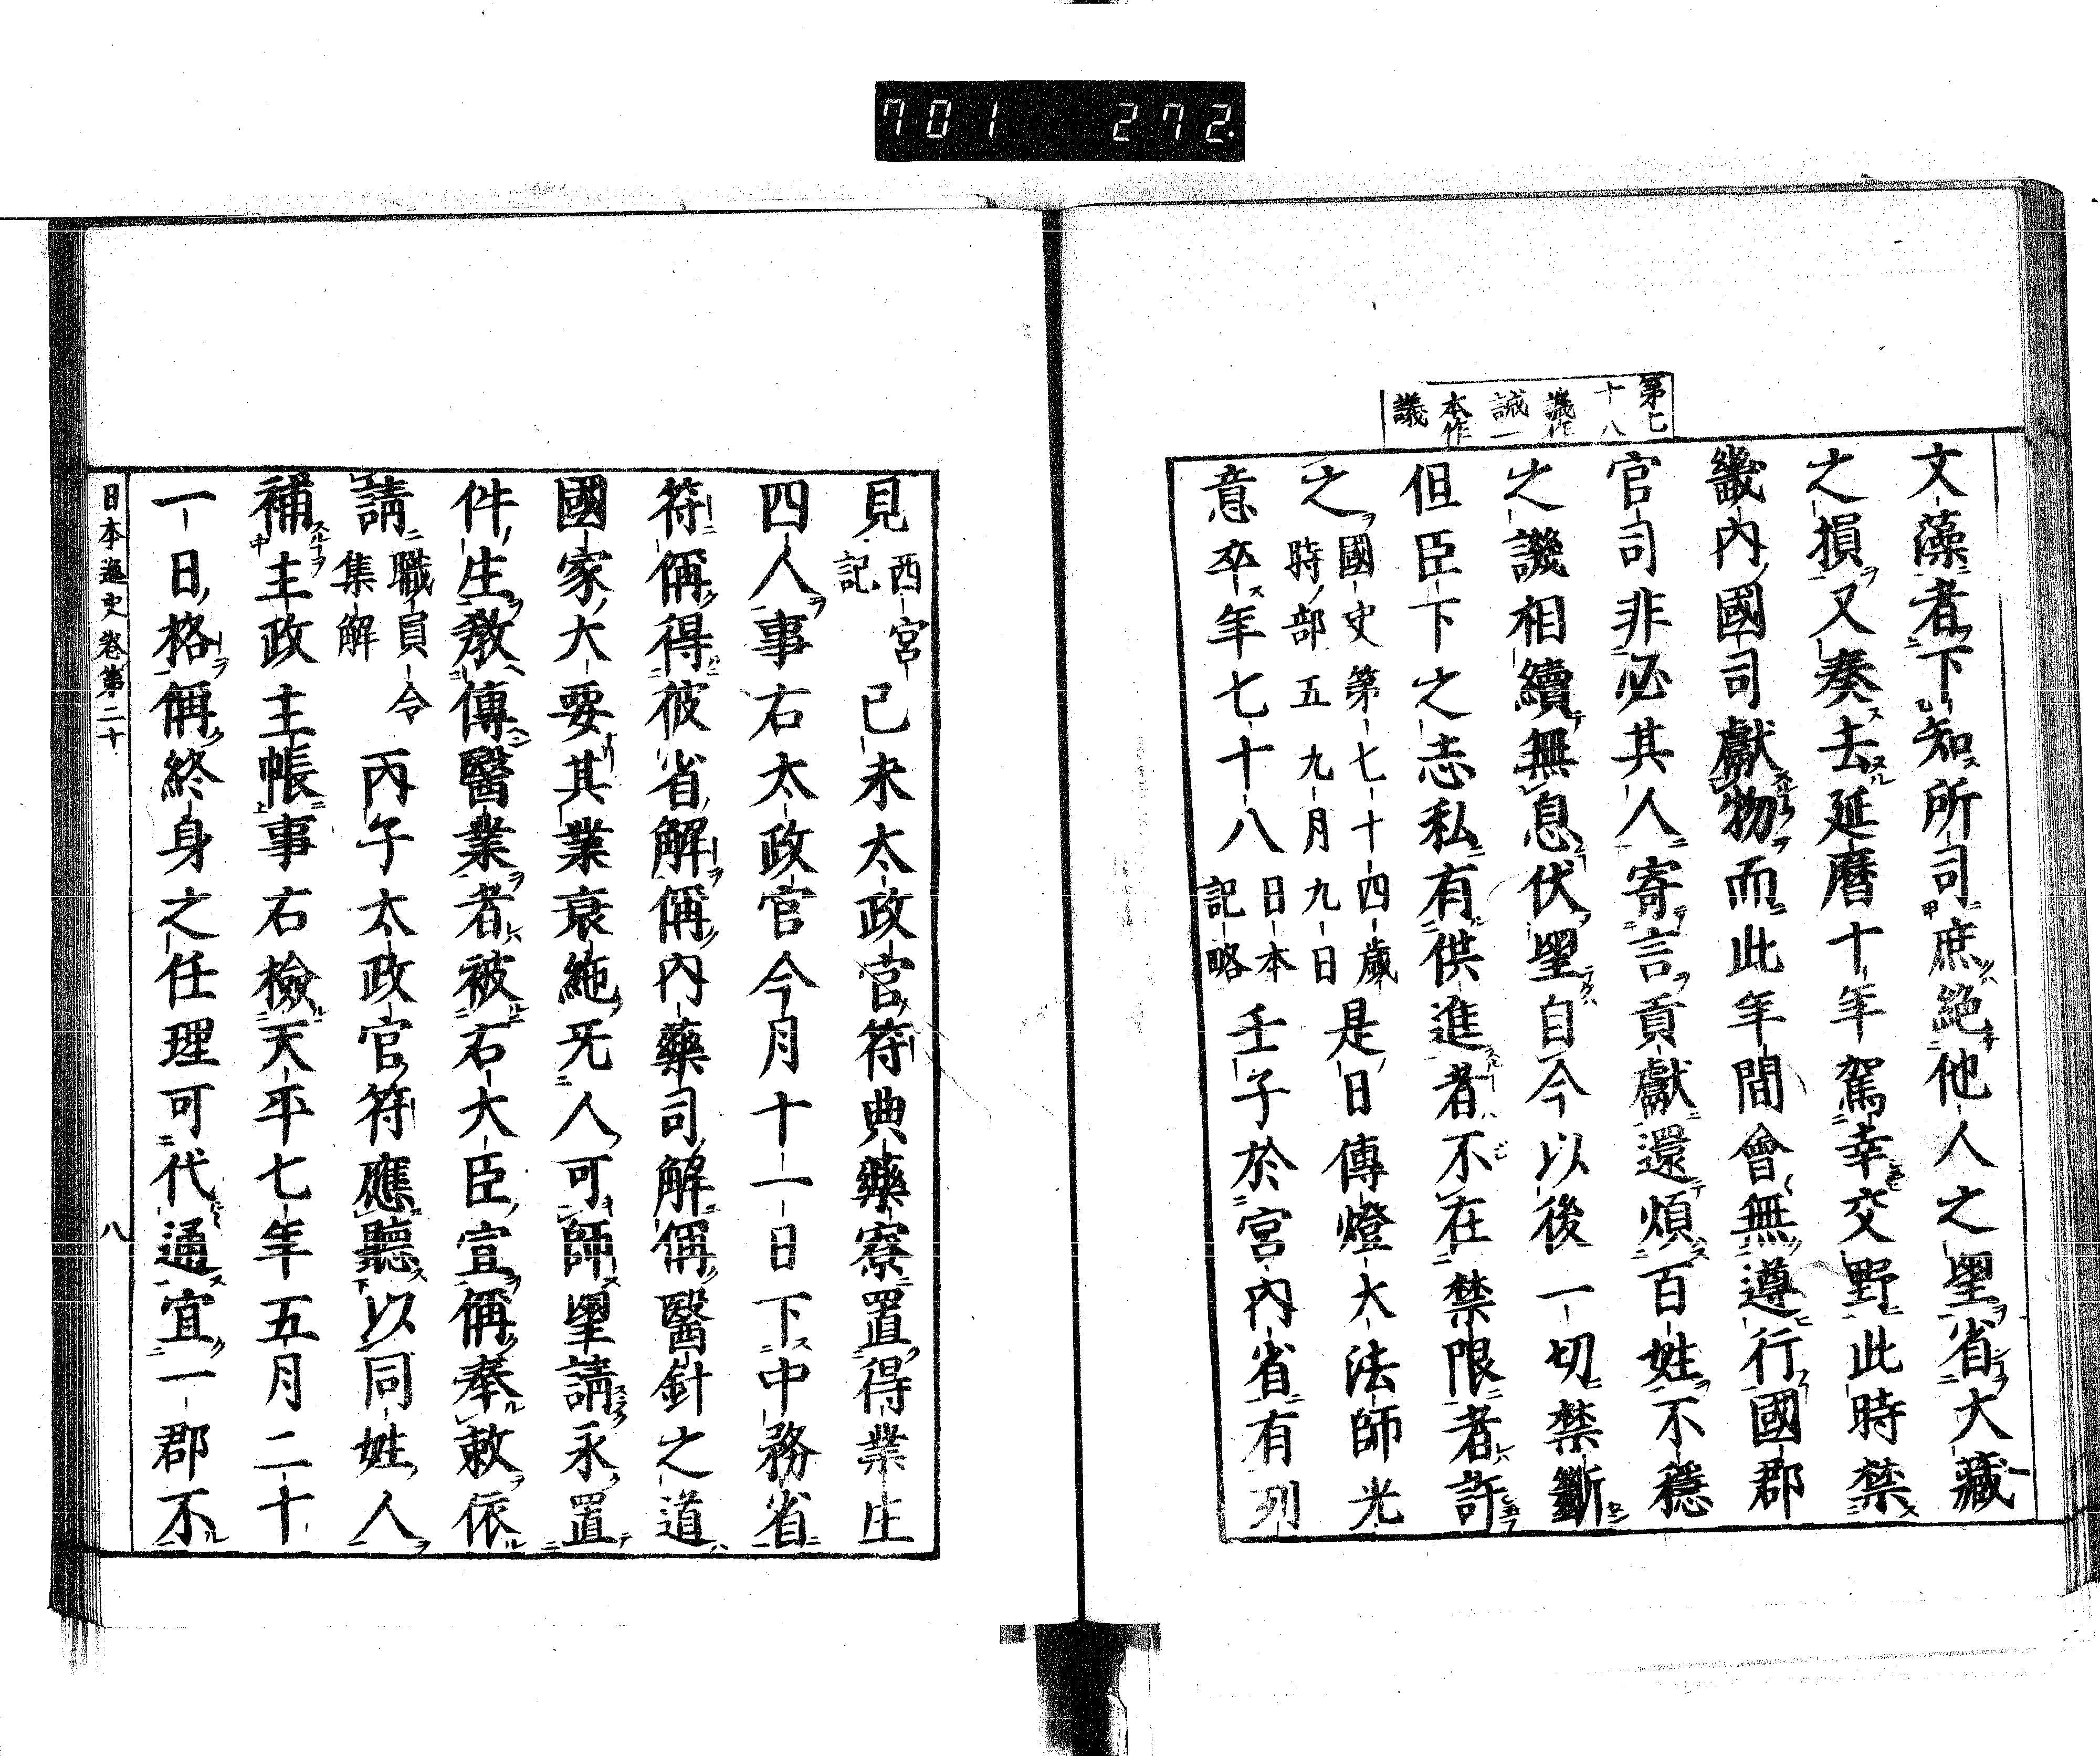 701 272.
第七
十八
譏作
誡一
本作
議
文藻者下知所司庶絕他人之望省大藏
之損又奏去延曆十年駕幸交野此時禁
畿內國司獻物而此年間會無遵行國郡
官司非必其人寄言貢獻還煩百姓不穩
之譏相續無息伏望自今以後一切禁斷
但臣下之志私有供進者不在禁限者許
之國史第七十四歲時部五九月九日是日傳燈大法師光
意卒年七十八日本記略壬子於宮內省有列
見西宮記己未太政官符典藥寮置得業生
四人事右太政官今月十一日下中務省
符偁得彼省解偁內藥司解偁醫針之道
國家大要其業衰絕旡人可師望請永置
件生教傳醫業者被右大臣宣偁奉敕依
請職員令集解丙午太政官符應聽以同姓人
補主政主帳事右檢天平七年五月二十
一日格偁終身之任理可代遍宜一郡不
日本逸史卷第二十
八